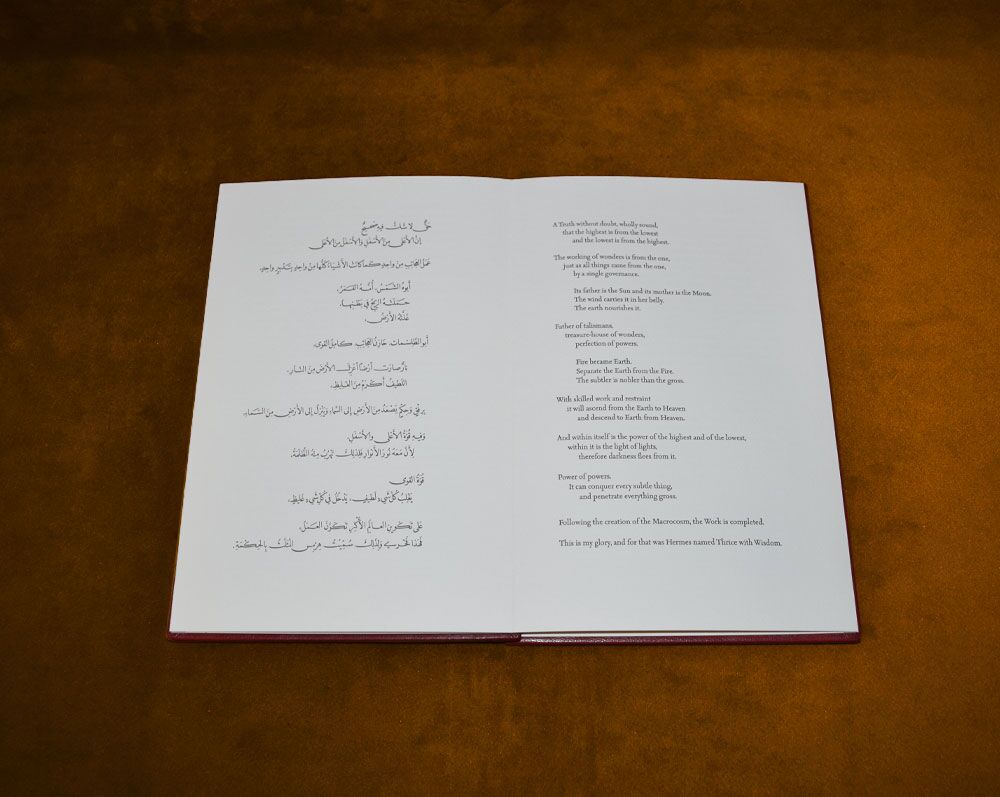 حَقٌّ لا شَكَّ فيهِ صَحيحٌ
إِنَّ الأَعْلى مِنَ الأَسْفَلِ وَالأَسْفَلَ مِنَ الأَعْلى
عَمَلُ العَجائِبِ مِن واحِدٍ كَما كانَت الأَشْياءُ كُلُّها مِن واحِدٍ بِتَدْبيرٍ واحِدٍ.
أَبوهُ الشَّمْسُ، أُمُّهُ القَمَرُ،
حَمَلَتْهُ الرّيحُ في بَطْنِها،
غَذَتْهُ الأَرْضُ،
أَبو الطِّلَسْمات، خازِنُ العَجائِبِ، كامِلُ القِوى.
نارٌ صارَت أَرْضًا اعْزِلِ الأَرْضَ مِنَ النّارِ،
اللَّطيفُ أَكْرَمُ مِنَ الغَليظِ،
بِرِفْقٍ وَحِكَمٍ يَصْعَدُ مِنَ الأَرْضِ إِلى السَّماءِ وَيَنْزِلُ إِلى الأَرْضِ مِنَ السَّماءِ،
وَفيهِ قُوَّةُ الأَعْلى وَالأَسْفَلِ.
لِأَنَّ مَعَهُ نُورَ الأَنْوارِ فَلِذلِكَ تَهْرُبُ مِنْهُ الظُّلْمَةُ.
قُوَّةُ القِوى
يَغْلِبُ كُلَّ شَيءٍ لَطيفٍ، يَدْخُلُ في كُلِّ شَيءٍ غَليظٍ.
عَلى تَكْوينِ العالَمِ الأَكْبَرِ تَكَوَّنَ العَمَلُ،
فَهذا فَخْري وَلِذلِكَ سُمِّيْتُ هِرْمِسَ المُثَلَّثَ بِالحِكْمَةِ.
A Truth without doubt, wholly sound,
that the highest is from the lowest
and the lowest is from the highest.
The working of wonders is from the one,
just as all things came from the one,
by a single governance.
Its father is the Sun and its mother is the Moon.
The wind carries it in her belly.
The earth nourishes it.
Father of talismans,
treasure-house of wonders,
perfection of powers.
Fire became Earth.
Separate the Earth from the Fire.
The subtler is nobler than the gross.
With skilled work and restraint
it will ascend from the Earth to Heaven
and descend to Earth from Heaven.
And within itself is the power of the highest and of the lowest,
within it is the light of lights,
therefore darkness flees from it.
Power of powers.
It can conquer every subtle thing,
and penetrate everything gross.
Following the creation of the Macrocosm, the Work is completed.
This is my glory, and for that was Hermes named Thrice with Wisdom.